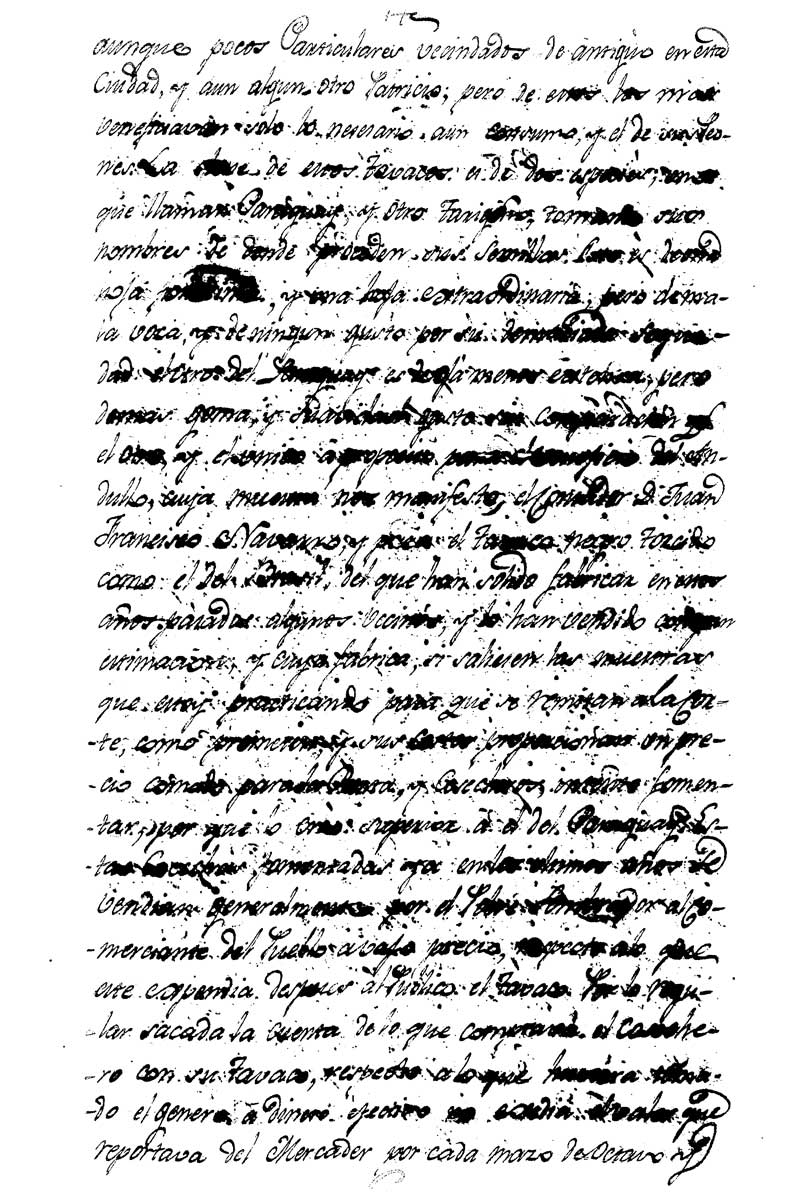 aunque pocos Particulares vecindados de antiguo en esta
Ciudad, y aun algun otro Patricio; pero de estos los mas
veneficiavan solo lo necesario aun consumo, y el de sus Peo-
nes. La clase de estos tavacos es de dos especies, una
que llaman Paraguay, y otro Tarijeño, tomando sus
nombres de donde proceden sus Semillas. Este es de una
hoja, y una hoja extraordinaria, pero de ma-
la voca, y de ningun gusto por su demasiada seque-
dad: el otro del Paraguay es de oja menos, pero
de mas goma, y suavidad, gusto sin comparacion
el otro, y el unico á proposito para el beneficio del An-
dullo, cuya muestra nos manifesto, el Contador Dn Juan
Francisco Navarro, y para el tavaco negro torcido
como el del Brasil, del que han solido fabricar en estos
años pasados algunos vecinos, y lo han vendido con
estimacion, y cuya fabrica, si saliesen las muestras
que estoy practicando para que se remitan a la Cor-
-te, como prometen y sus costos proporcionan un pre-
-cio comodo para la Renta, y Cosecheros, intento fomen-
-tar, por que lo creo superior á el del Paraguay. Es-
-tas Cosechas fomentadas ya en los ultimos años se
vendian generalmente por el Pobre Sembrador al Co-
-merciante del Pueblo a bajo precio, respecto a lo que
este expendia despues al Publico el tavaco. Por lo regu-
-lar sacada la cuenta de lo que el Coseche-
-ro con su tavaco, respecto a lo que huviera toma-
-do el genero á dinero efectivo no excedia el valor que
reportava del Mercader por cada mazo de Octavo y